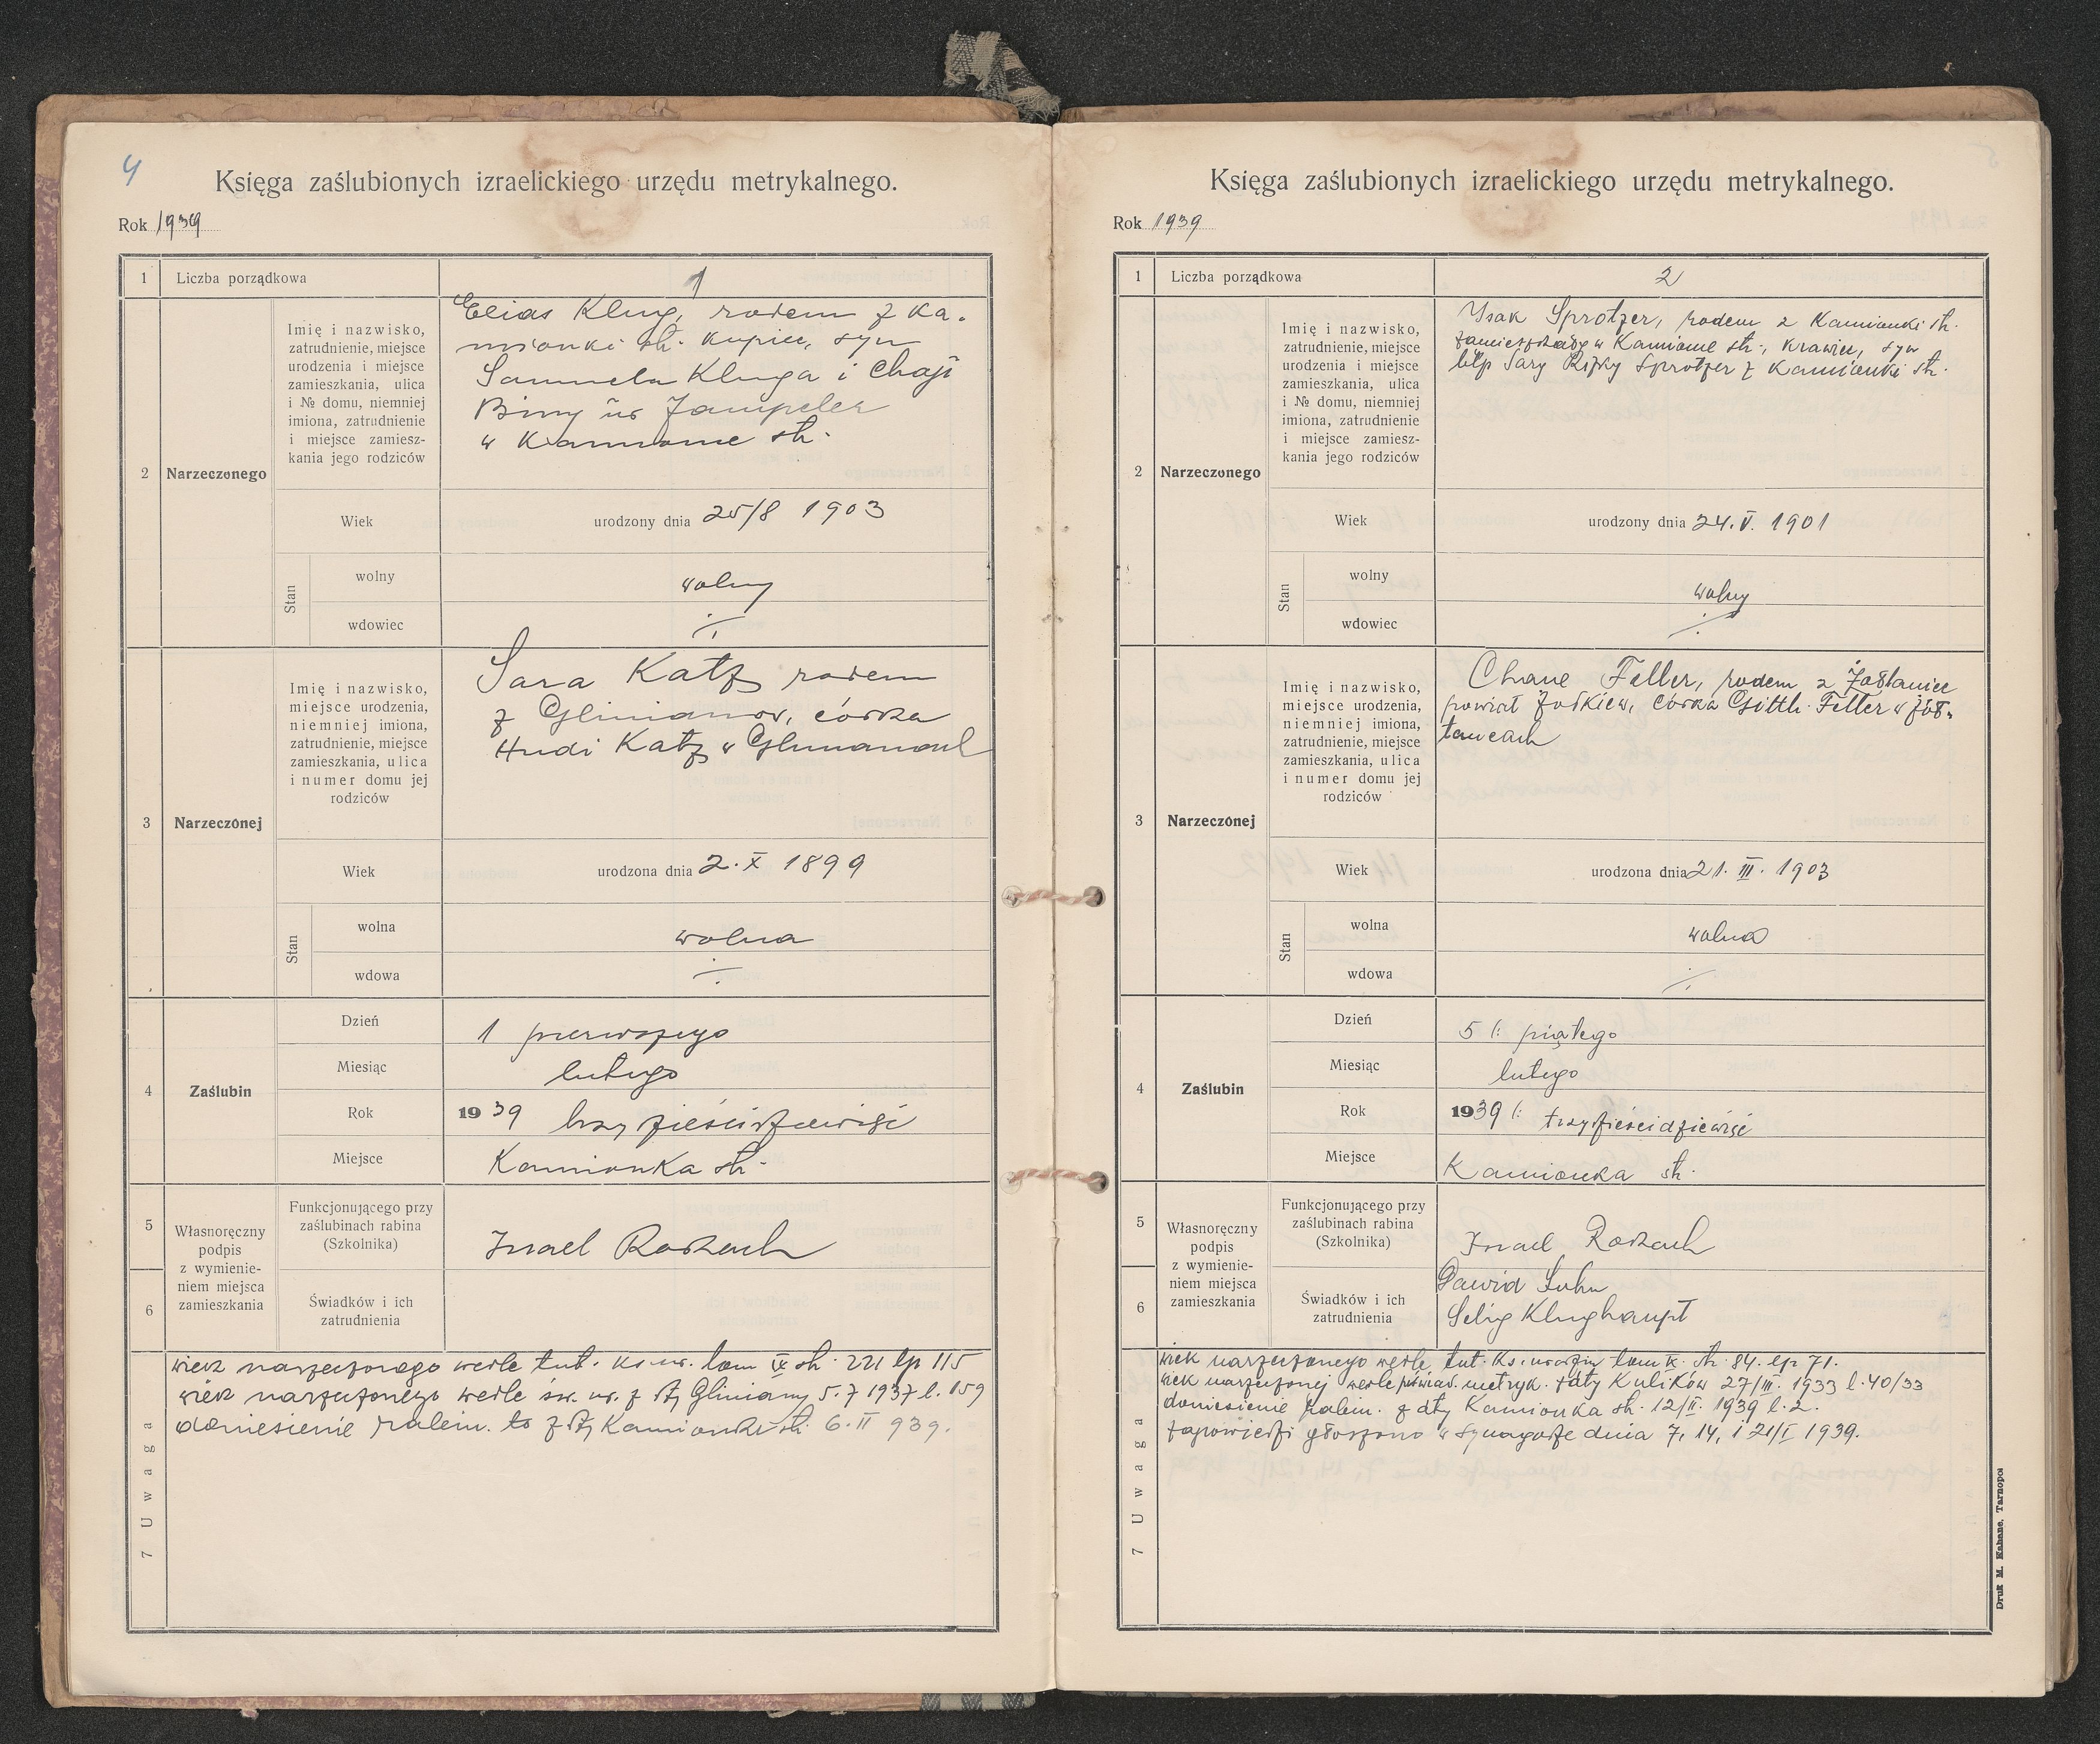 4
Księga zaślubionych izraelickiego urzędu metrykalnego.
Rok 1939
1 Liczba porządkowa 1
2 Narzeczonego
Imię i nazwisko,
zatrudnienie, miejsce
urodzenia i miejsce
zamieszkania, ulica
i № domu, niemniej
imiona, zatrudnienie
i miejsce zamiesz-
kania jego rodziców
Elias Klug, rodem z Ka-
mionki str. kupiec, syn
Samuela Kluga i Chaji
Biny ur Jampeler
w Kamionce str.
Wiek urodzony dnia 25/8 1903
Stan
wolny wolny
wdowiec
3 Narzeczonej
Imię i nazwisko,
miejsce urodzenia,
niemniej imiona,
zatrudnienie, miejsce
zamieszkania, ulica
i numer domu jej
rodziców
Sara Katz rodem
z Glinianow, córka
Hudi Katz w Glinianach
Wiek urodzona dnia 2. X 1899
Stan
wolna wolna
wdowa
4 Zaślubin
Dzień 1 pierwszego
Miesiąc lutego
Rok 1939 trzydzieścidziewięć
Miejsce Kamionka str.
5
6
Własnoręczny
podpis
z wymienie-
niem miejsca
zamieszkania
Funkcjonującego przy
zaślubinach rabina
(Szkolnika)
Israel
Świadków i ich
zatrudnienia
7 Uwaga
wiek narzeczonego wedle tut. ks. ur. tom IX str. 221 lp 115
wiek narzeczonej wedle św. ur. z dty Gliniany 5.7 1937 l. 159
doniesienie ralem. to z dty Kamionki str. 6. II 939.
Księga zaślubionych izraelickiego urzędu metrykalnego.
Rok 1939
1 Liczba porządkowa 2
2 Narzeczonego
Imię i nazwisko,
zatrudnienie, miejsce
urodzenia i miejsce
zamieszkania, ulica
i № domu, niemniej
imiona, zatrudnienie
i miejsce zamiesz-
kania jego rodziców
Isak Sprotzer, rodem z Kamionki str.
zamieszkały w Kamionce str., krawiec, syn
błp Sary Rifky Sprotzer z Kamionki str.
Wiek urodzony dnia 24. V. 1901
Stan
wolny wolny
wdowiec
3 Narzeczonej
Imię i nazwisko,
miejsce urodzenia,
niemniej imiona,
zatrudnienie, miejsce
zamieszkania, ulica
i numer domu jej
rodziców
Chane Feller, rodem z Żółtaniec
powiat Żółkiew, córka Gittli Feller w Żół-
tańcach
Wiek urodzona dnia 21. III. 1903
Stan
wolna wolna
wdowa
4 Zaślubin
Dzień 5 /: piątego
Miesiąc lutego
Rok 1939 /: trzydzieścidziewięć
Miejsce Kamionka str.
5
6
Własnoręczny
podpis
z wymienie-
niem miejsca
zamieszkania
Funkcjonującego przy
zaślubinach rabina
(Szkolnika)
Israel
Świadków i ich
zatrudnienia
Dawid
Selig Klughaupt
7 Uwaga
wiek narzeczonego wedle tut. ks. urodzin tom IX. str. 84. lp. 71.
wiek narzeczonej wedle poświad. metryk. daty Kulików 27/III. 1933 l. 40/33
doniesienie z dty Kamionka str. 12/II. 1939 l. 2.
zapowiedzi głoszono w synagodze dnia 7, 14, i 21/I 1939.
Druk M. Kahane, Tarnopol